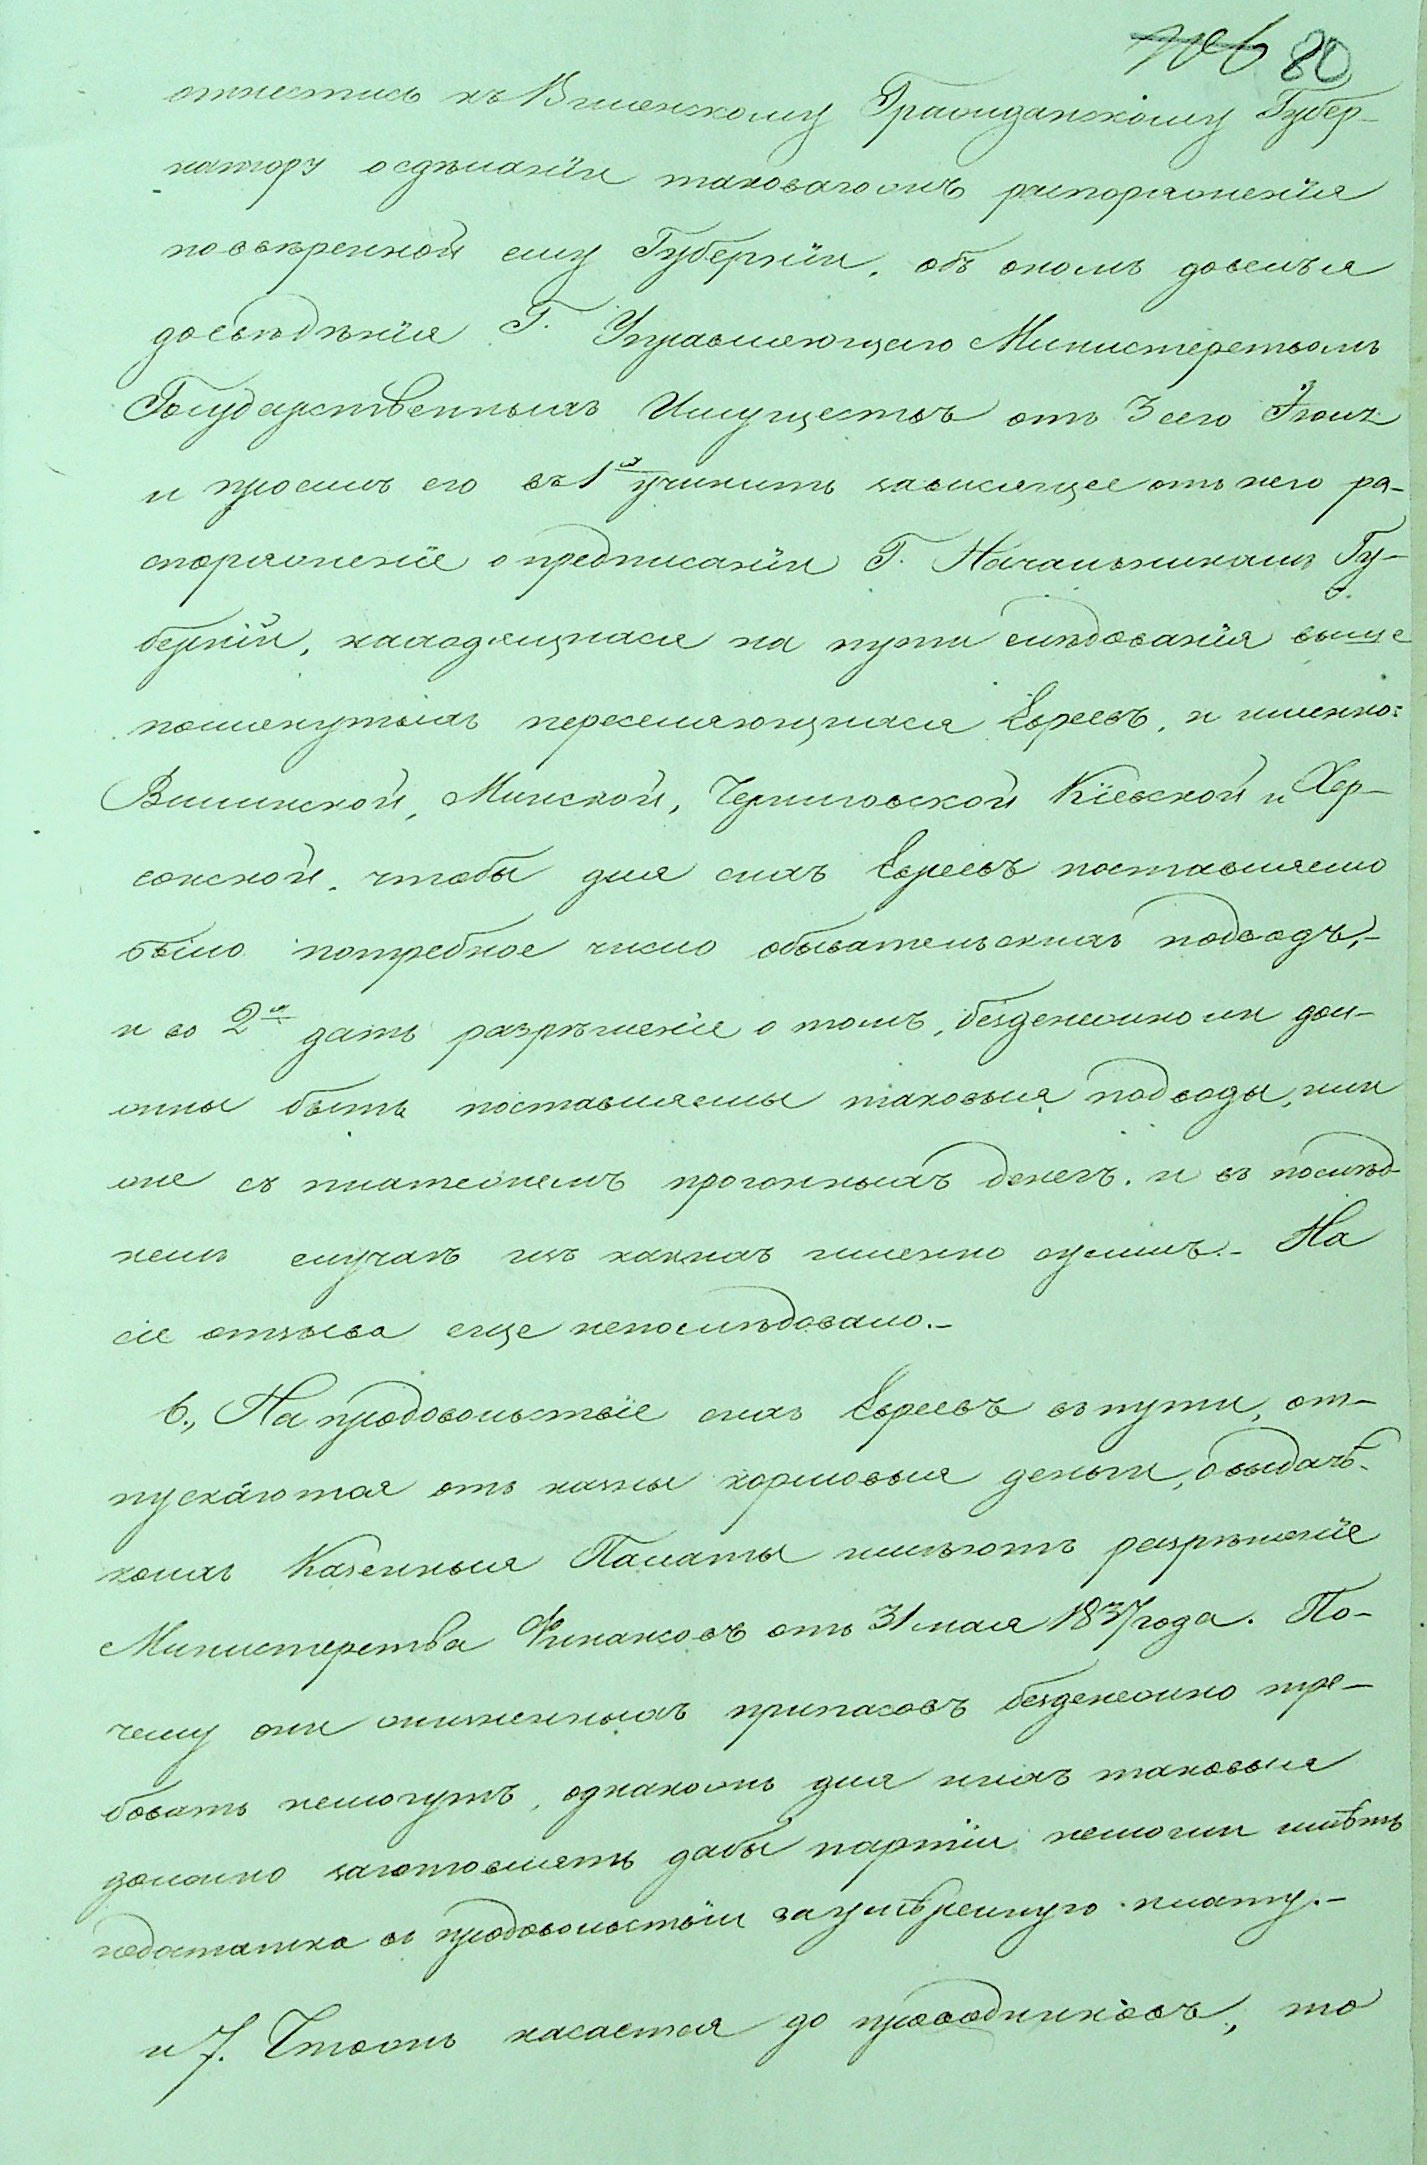 80
отнестись къ Виленскому Гражданскому Губер-
натору о сдѣланіи таковагожъ распоряженія
по ввѣренной ему Губерніи, объ ономъ довелъ я
до свѣдѣнія Г. Управляющаго Министерствомъ
Государственныхъ Имуществъ отъ 3 сего Іюня
и просилъ его въ 1х учинить зависящее отъ него ра-
споряженіе о предписаніи Г. Начальникамъ Гу-
берній, находящихся на пути слѣдованія выше
помянутыхъ переселяющихся Евреевъ, и именно:
Виленской, Минской, Черниговской Кіевской и Хер-
сонской, чтобы для сихъ Евреевъ поставляемо
было потребное число обывательскихъ подводъ,-
и во 2х дать разрѣшеніе о томъ, безденежно ли дол-
жны быть поставляемы таковыя подводы, или
же съ платежемъ прогонныхъ денегъ, и въ послѣд-
немъ случаѣ изъ какихъ именно суммъ.- На
сіе отзыва еще непослѣдовало.-
6., На продовольствіе сихъ Евреевъ въ пути, от-
пускаются отъ казны кормовыя деньги, о выдачѣ
коихъ Казенныя Палаты имѣютъ разрѣшеніе
Министерства Финансовъ отъ 31 мая 1837 года. По-
чему они жизненныхъ припасовъ безденежно тре-
бовать немогутъ, однакожъ для нихъ таковыя
должно заготовлять дабы партіи немогли имѣть
недостатка въ продовольствіи за умѣренную плату.-
и 7. Чтожъ касается до проводниковъ, то